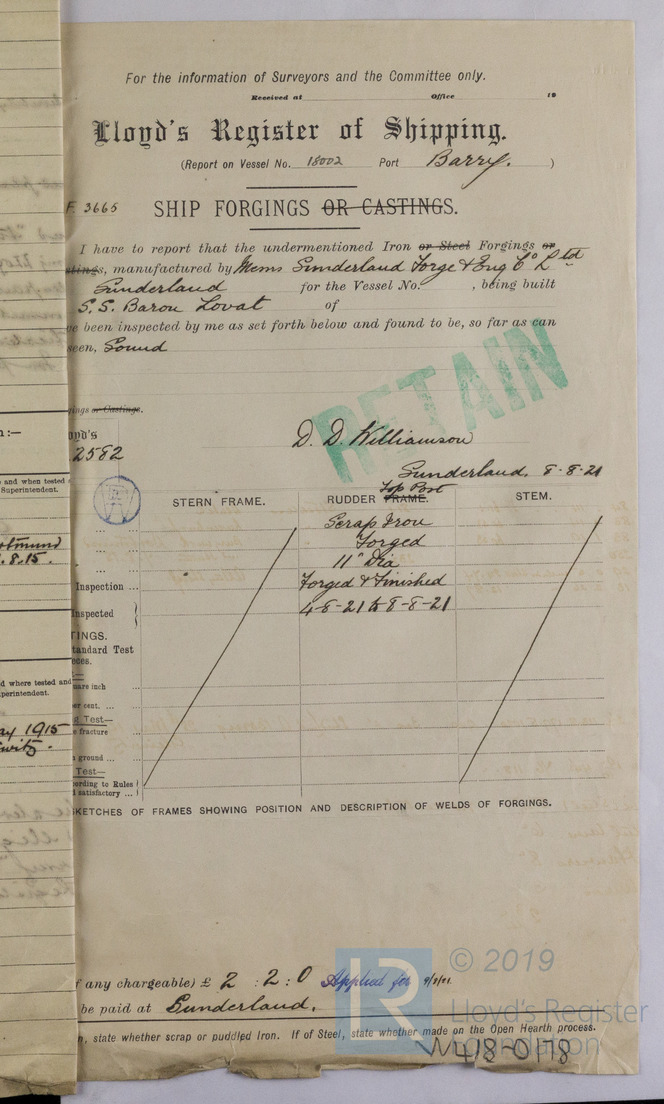 For the information of Surveyors and the Committee only.
Received at Office 19
Lloyd's Register of Shipping.
(Report on Vessel No. 18002 Port Barry. )
F. 3665 SHIP FORGINGS OR CASTINGS.
I have to report that the undermentioned Iron or Steel Forgings or
stings, manufactured by Messrs Sunderland Forge & Eng Co Ltd
Sunderland for the Vessel No. , being built
S.S. Baron Lovat of
ve been inspected by me as set forth below and found to be, so far as can
seen, Sound
RETAIN
ings or Castings.
oyd's
D. D. Williamson
2582
Sunderland, 8-8-21
STERN FRAME. RUDDER FRAME. Top Post STEM.
Scrap Iron
Forged
11" Dia
Inspection ... Forged & Finished
nspected 4-8-21 to 8-8-21
TINGS.
tandard Test
eces.
uare inch
er cent. ...
g Test—
e fracture
n ground ...
Test—
cording to Rules
d satisfactory ...
SKETCHES OF FRAMES SHOWING POSITION AND DESCRIPTION OF WELDS OF FORGINGS.
f any chargeable) £ 2 : 2 : 0 Applied for 9/8/21
be paid at Sunderland.
n, state whether scrap or puddled Iron. If of Steel, state whether made on the Open Hearth process.
W418-0178
n:—
and when tested
Superintendent.
.8.15.
d where tested and
perintendent.
ay 1915
© 2019
LR
Lloyd's Register
Foundation